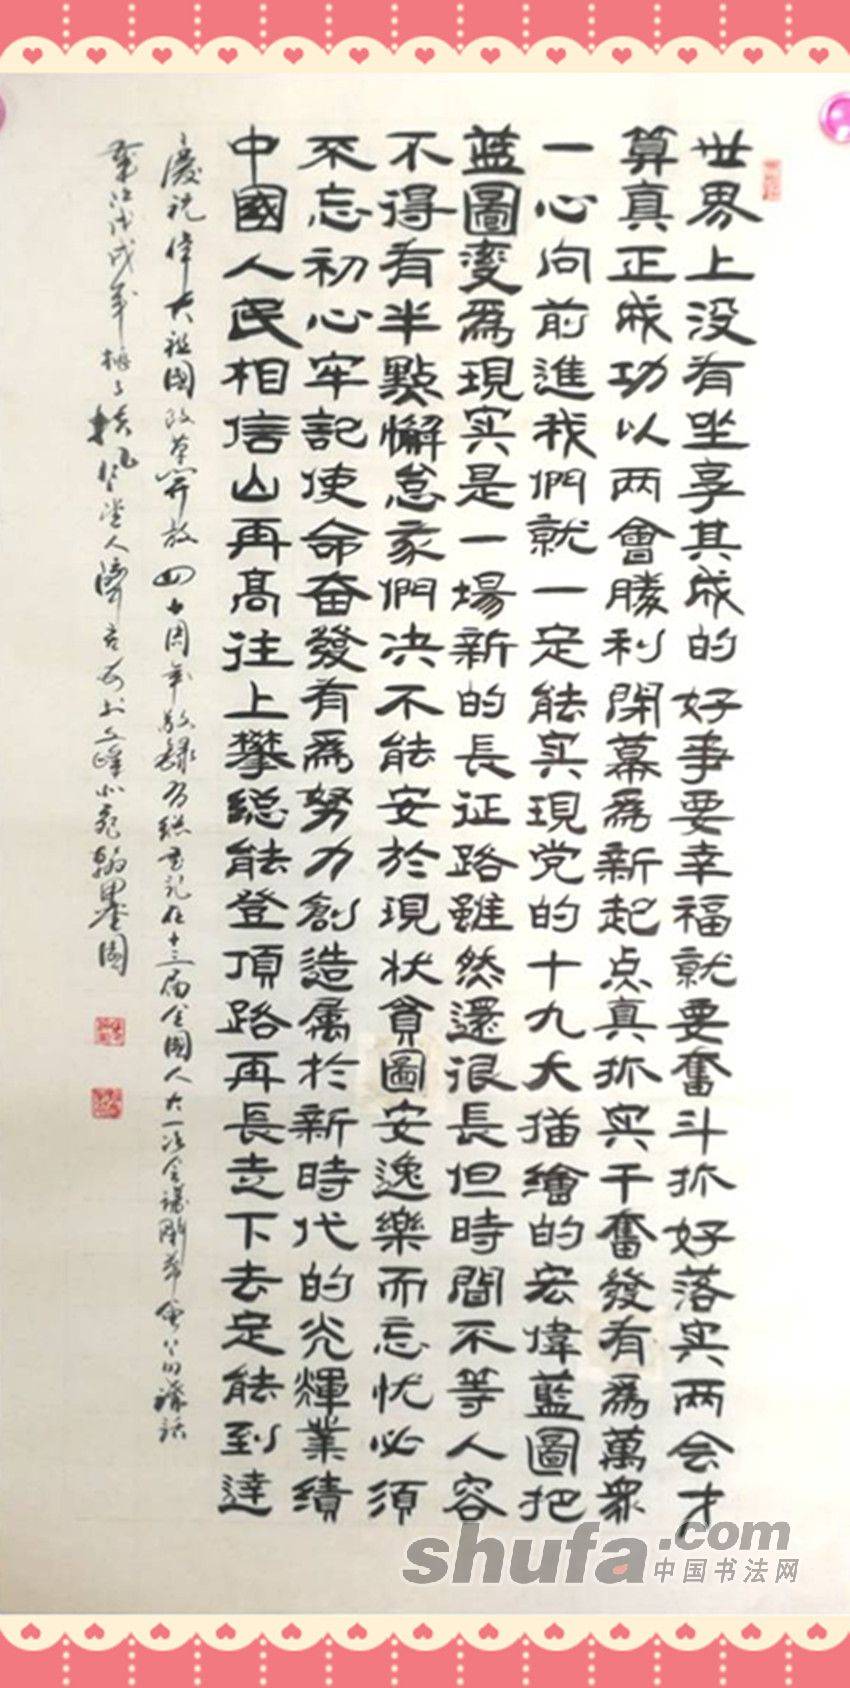 世界上没有坐享其成的好事要幸福就要奮斗抓好落实两会才
算真正成功以两會勝利閉幕為新起点真抓实干奮發有為萬衆
一心向前進我們就一定能实現党的十九大描繪的宏偉藍圖把
蓝圖变為現实是一場新的長征路雖然還很長但時間不等人容
不得有半點懈怠我們决不能安於現状貪圖安逸樂而忘忧必须
不忘初心牢記使命奋發有為努力創造属於新時代的光輝業績
中國人民相信山再高往上攀總能登頂路再長走下去定能到達
慶祝偉大祖國改革開放四十周年敬録習總書記在十三届全國人大一次会議閉幕會上的講話
戊戌年 梅 人 於 翰墨園
shufa.com
中国书法网